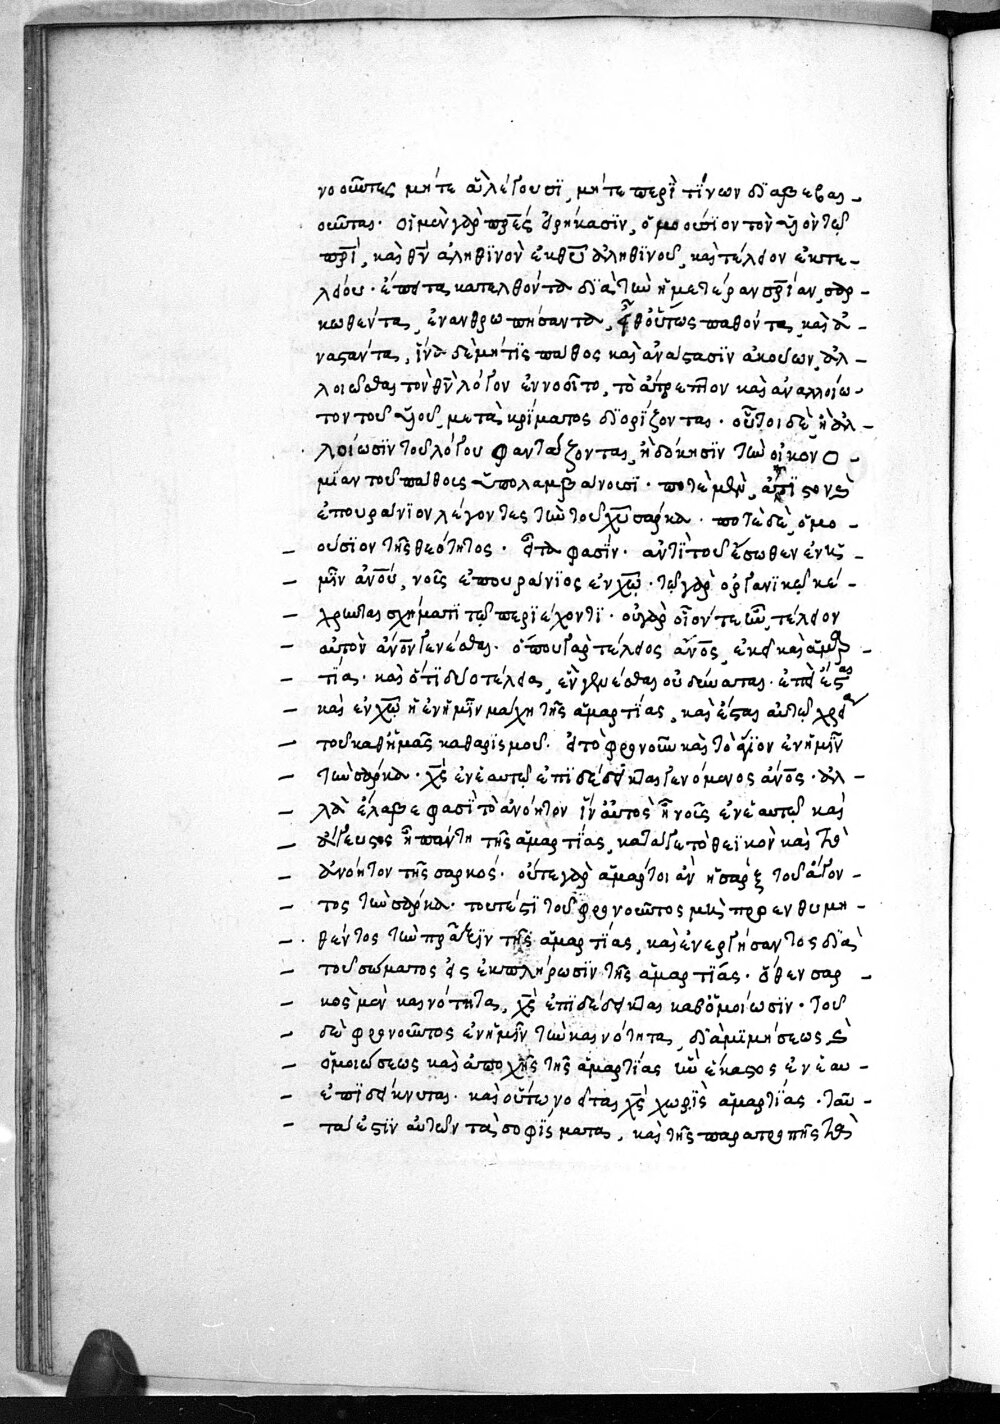 νοοῦντες μήτε ἃ λέγουσϊ, μήτε περὶ τίνων δϊαβεβαι-
οῦνται. οἱ μὲν γὰρ π̅ρ̅ε̅ς εἰρήκασϊν, ὁμοούσϊον τὸν υἱὸν τῷ
π̅ρ̅ὶ, καὶ θ̅ν̅ ἀληθϊνὸν ἐκ θ̅υ̅ ἀληθϊνοῦ, καὶ τέλειον ἐκ τε-
λείου. ἔπειτα κατελθόντα δϊὰ τὴν ἡμετέραν σ̅ρ̅ίαν, σαρ-
κωθέντα, ἐνανθρωπήσαντα, εἶθ' οὕτως παθόντα, καὶ ἀ-
ναστάντα, ἵνα δὲ μή τϊς πάθος καὶ ἀνάστασϊν ἀκούων, ἀλ-
λοιοῦσθαι τὸν θ̅ν̅ λόγον ἐννοοῖτο, τὸ ἄτρεπτον καὶ ἀναλλοίω-
τον τοῦ υἱοῦ, μετὰ κρίματος δϊορίζονται. οὗτοι δὲ, ἢ ἀλ-
λοίωσϊν τοῦ λόγου φαντάζονται, ἢ δόκησϊν τὴν οἰκονο-
μίαν τοῦ πάθους ὑπολαμβάνουσϊ. ποτὲ μὲν, ἄκτϊστον καὶ
ἐπουράνϊον λέγοντες τὴν τοῦ χ̅υ̅ σάρκα. ποτὲ δὲ, ὁμο-
ούσϊον τῆς θεότητος. εἶτα φασϊν. ἀντὶ τοῦ ἔσωθεν ἐν ἡ-
μῖν ἀ̅ν̅ο̅υ̅, νοῦς ἐπουράνϊος ἐν χ̅ω̅. τῷ γὰρ ὀργανϊκῷ κέ-
χρηται σχήματϊ τῷ περϊέχοντϊ. οὐ γὰρ οἷόν τε ἦν, τέλειον
αὐτὸν ἀ̅ν̅ο̅ν̅ γενέσθαι. ὅπου γὰρ τέλειος ἄ̅ν̅ο̅ς̅, ἐκεῖ καὶ ἁμαρ-
τία. καὶ ὅτϊ δύο τέλεια, ἓν γενέσθαι οὐ δύναται. ἐπεὶ ἔσται
καὶ ἐν χ̅ω̅ ἡ ἐν ἡμῖν μάχη τῆς ἁμαρτίας, καὶ ἔσται αὐτῷ χρεία
τοῦ καθ' ἡμᾶς καθαρϊσμοῦ. εἰ τὸ φρονοῦν καὶ τὸ ἄγϊον ἐν ἡμῖν
τὴν σάρκα. χ̅ς̅ ἐν ἑαυτῷ ἐπϊδέδεικται γενόμενος ἄ̅ν̅ο̅ς̅. ἀλ-
λὰ ἔλαβε φασϊ τὸ ἀνόητον ἵν' αὐτὸς ᾖ νοῦς ἐν ἑαυτῷ καὶ
ἄγευστος ᾖ πάντη τῆς ἁμαρτίας, κατά γε τὸ θεϊκὸν καὶ τὸ
ἀνόητον τῆς σαρκός. οὔτε γὰρ ἁμάρτοι ἂν ἡ σὰρξ τοῦ ἄγον-
τος τὴν σάρκα. τουτέστϊ τοῦ φρονοῦντος μὴ προενθυμη-
θέντος τὴν πρᾶξϊν τῆς ἁμαρτίας, καὶ ἐνεργήσαντος δϊὰ
τοῦ σώματος εἰς ἐκπλήρωσϊν τῆς ἁμαρτίας. ὅθεν σαρ-
κὸς μὲν καινότητα, χ̅ς̅ ἐπϊδέδεικται καθ' ὁμοίωσϊν. τοῦ
δὲ φρονοῦντος ἐν ἡμῖν τὴν καινότητα, δϊὰ μϊμήσεως καὶ
ὁμοιώσεως καὶ ἀποχῆς τῆς ἁμαρτίας ὧν ἕκαστος ἐν ἑαυ-
ἐπϊδείκνυται. καὶ οὕτω νοεῖται χ̅ς̅ χωρὶς ἁμαρτίας. ταῦ-
τά ἐστϊν αὐτῶν τὰ σοφίσματα, καὶ τῆς παρατροπῆς τὰ